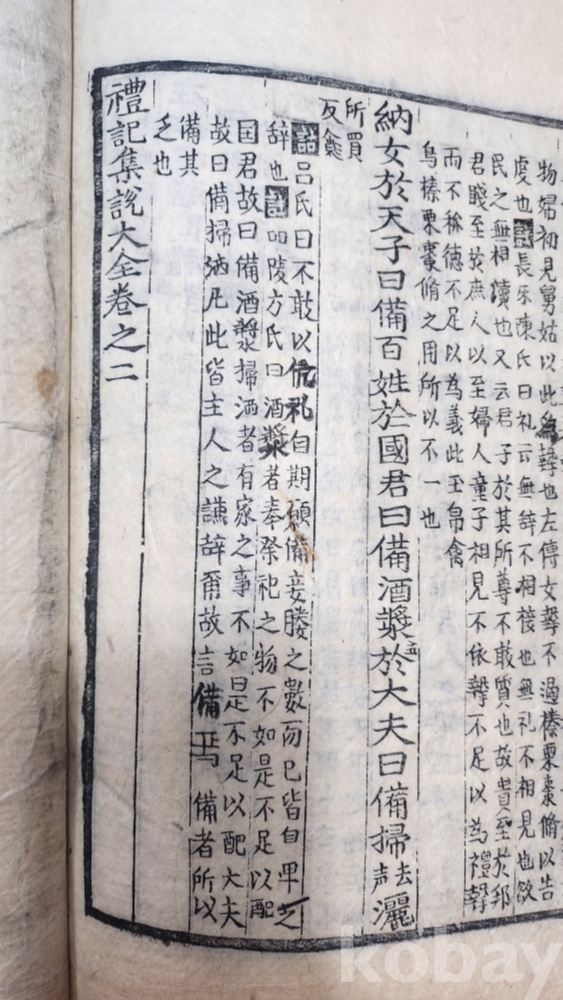 物婦初見舅姑以此為贄也左傳女贄不過榛栗棗脩以告
虔也註長乐陳氏曰礼云無辞不相接也無礼不相見也欲
民之無相瀆也又云君子於其所尊不敢質也故貴至於邦
君賤至於庶人以至婦人童子相見不依贄不足以為禮贄
而不称德不足以為義此玉帛禽
鸟榛栗棗脩之用所以不一也
納女於天子曰備百姓於國君曰備酒漿於大夫曰備掃去声灑
所買
反龠
註吕氏曰不敢以伉礼自期願備妾媵之數而已皆自卑之
辞也註陵方氏曰酒漿者奉祭祀之物不如是不足以配
国君故曰備酒漿掃洒者有家之事不如是不足以配大夫
故曰備掃洒凡此皆主人之謙辞爾故言備焉備者所以
備其
乏也
禮記集說大全卷之二
kobay